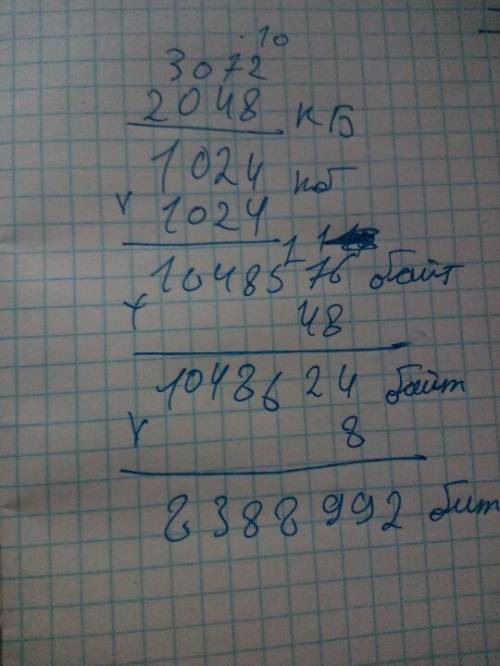 10
3072
2048 КБ
1024 кб
× 1024
1 1
1048576 байт
× 48
1048624 байт
× 8
8388992 бит